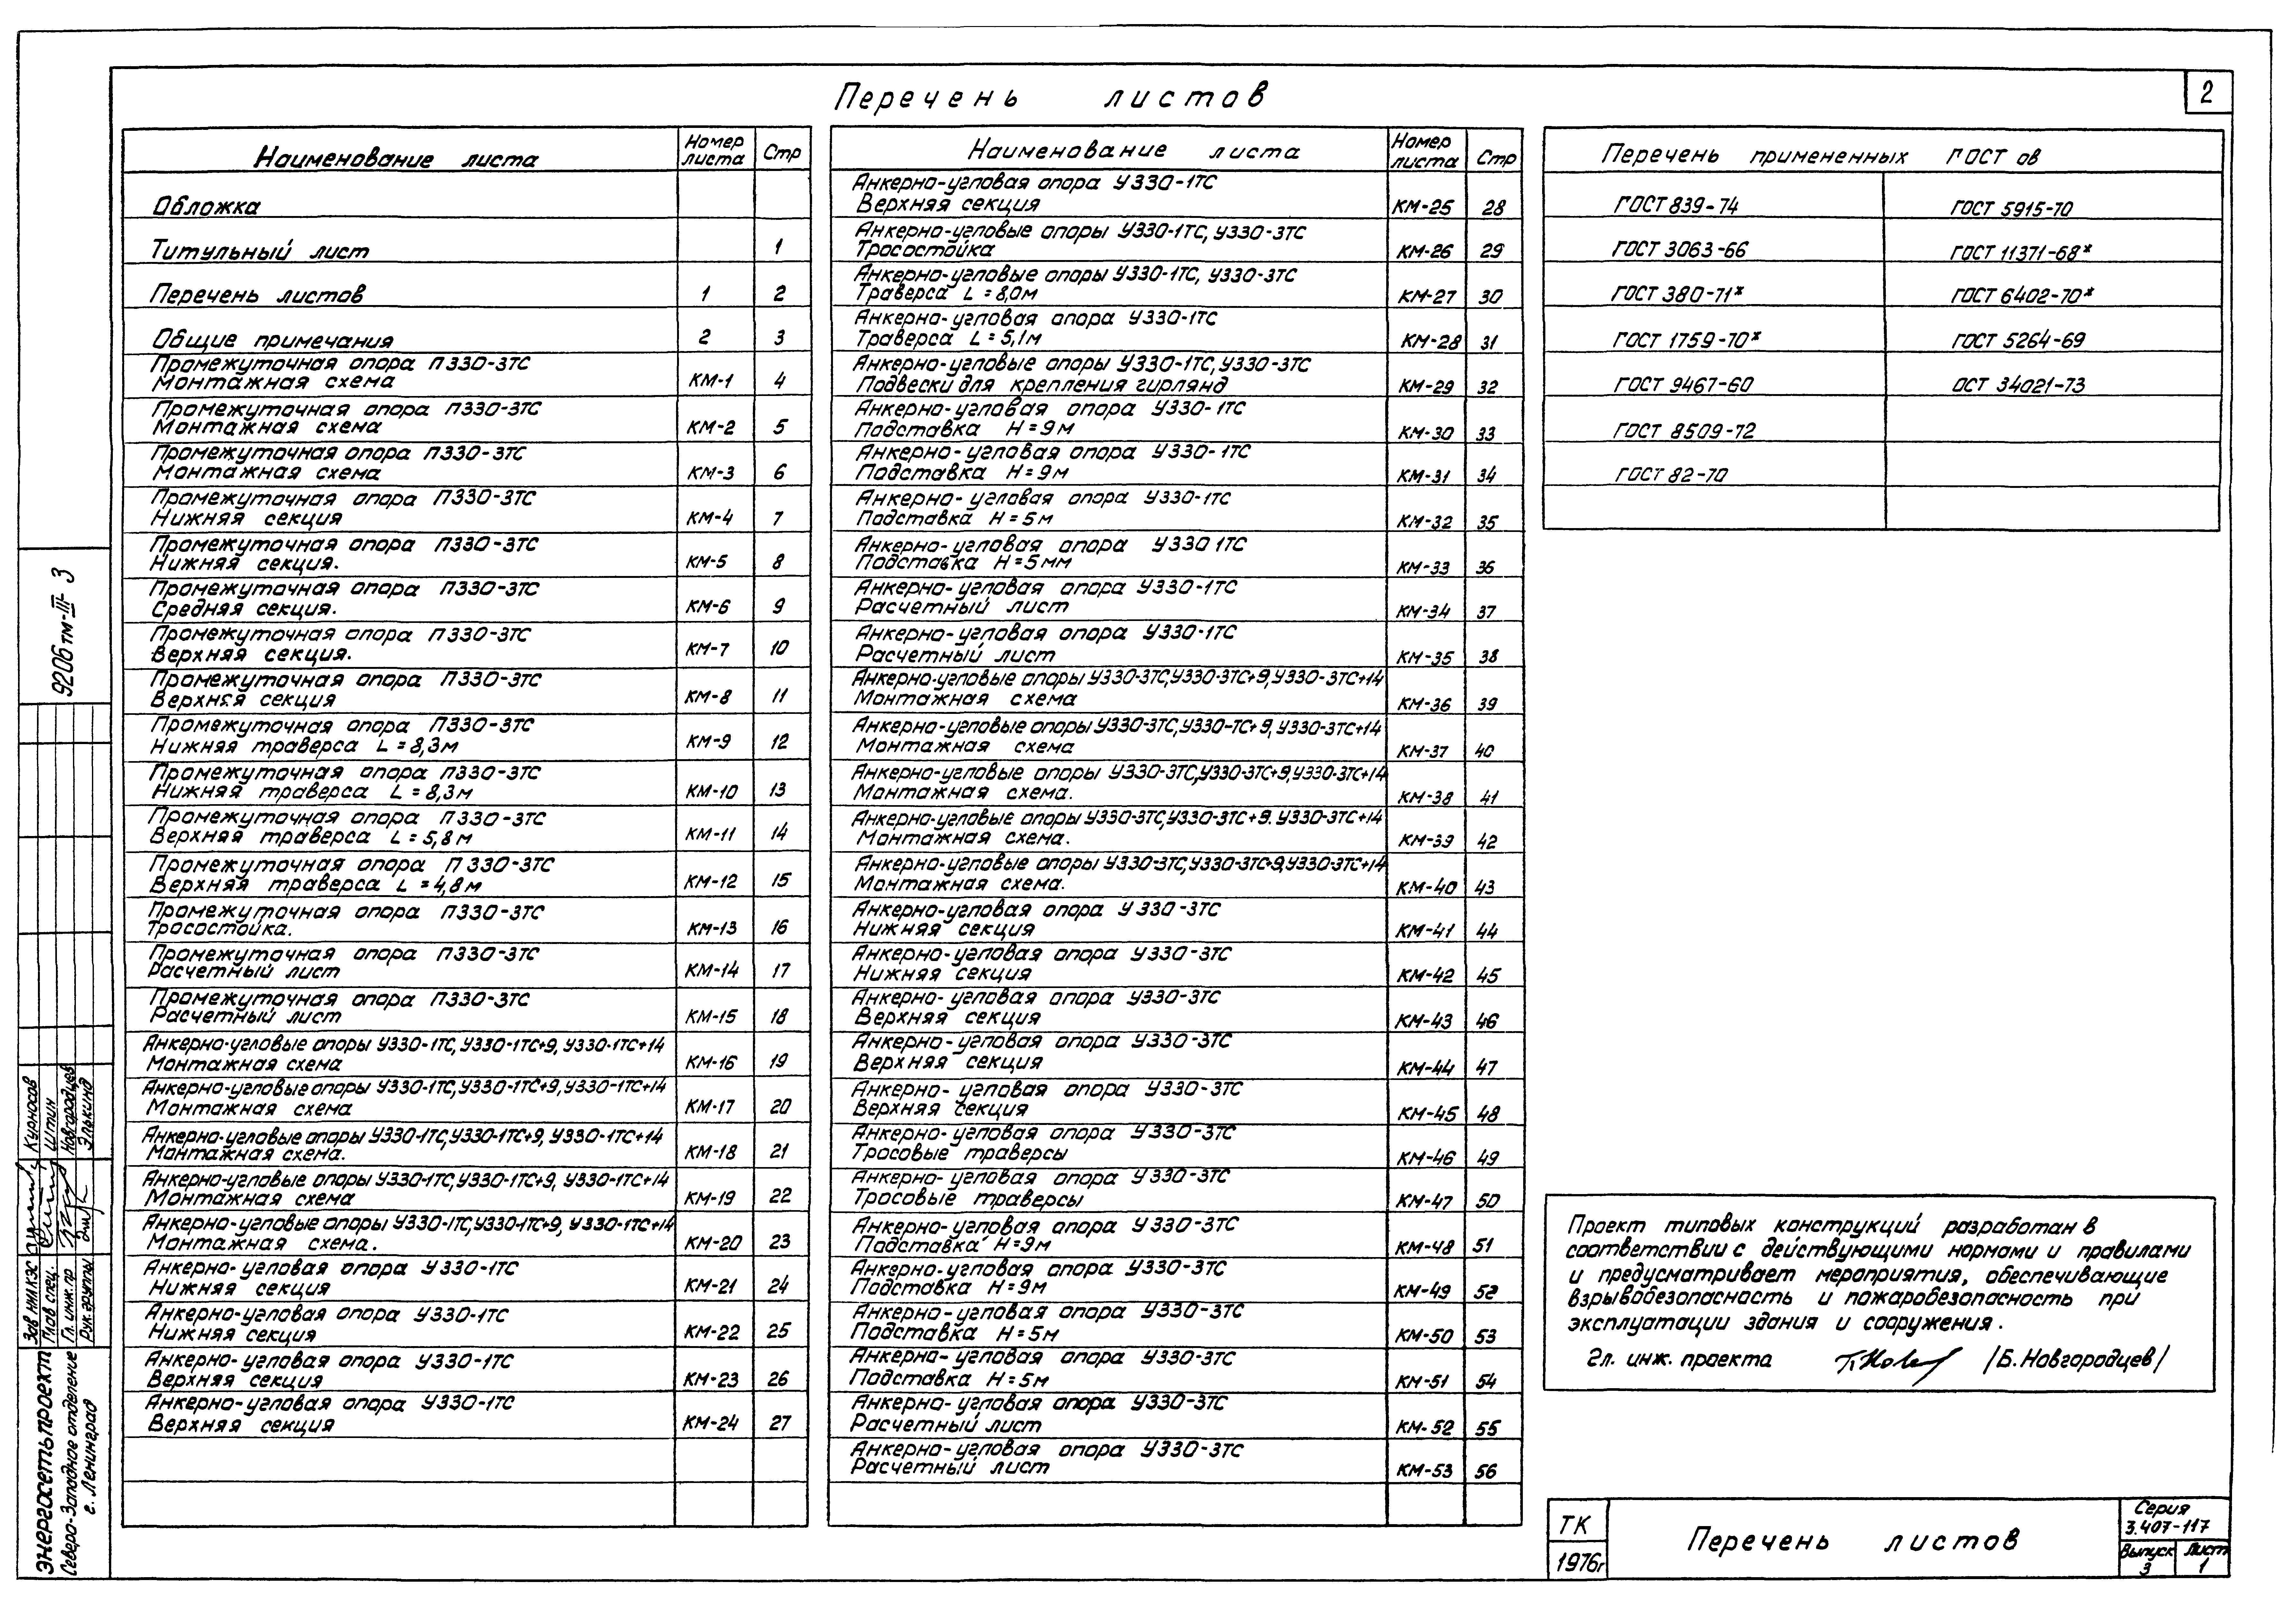 2
Перечень листов
Наименование листа Номер листа Стр
Обложка
Титульный лист 1
Перечень листов 1 2
Общие примечания 2 3
Промежуточная опора П330-3ТС
Монтажная схема КМ-1 4
Промежуточная опора П330-3ТС
Монтажная схема КМ-2 5
Промежуточная опора П330-3ТС
Монтажная схема КМ-3 6
Промежуточная опора П330-3ТС
Нижняя секция КМ-4 7
Промежуточная опора П330-3ТС
Нижняя секция. КМ-5 8
Промежуточная опора П330-3ТС
Средняя секция. КМ-6 9
Промежуточная опора П330-3ТС
Верхняя секция. КМ-7 10
Промежуточная опора П330-3ТС
Верхняя секция КМ-8 11
Промежуточная опора П330-3ТС
Нижняя траверса L = 8,3м КМ-9 12
Промежуточная опора П330-3ТС
Нижняя траверса L = 8,3м КМ-10 13
Промежуточная опора П330-3ТС
Верхняя траверса L = 5,8м КМ-11 14
Промежуточная опора П330-3ТС
Верхняя траверса L = 4,8м КМ-12 15
Промежуточная опора П330-3ТС
Тросостойка. КМ-13 16
Промежуточная опора П330-3ТС
Расчетный лист КМ-14 17
Промежуточная опора П330-3ТС
Расчетный лист КМ-15 18
Анкерно-угловые опоры У330-1ТС, У330-1ТС+9, У330-1ТС+14
Монтажная схема КМ-16 19
Анкерно-угловые опоры У330-1ТС, У330-1ТС+9, У330-1ТС+14
Монтажная схема КМ-17 20
Анкерно-угловые опоры У330-1ТС, У330-1ТС+9, У330-1ТС+14
Монтажная схема. КМ-18 21
Анкерно-угловые опоры У330-1ТС, У330-1ТС+9, У330-1ТС+14
Монтажная схема КМ-19 22
Анкерно-угловые опоры У330-1ТС, У330-1ТС+9, У330-1ТС+14
Монтажная схема. КМ-20 23
Анкерно-угловая опора У330-1ТС
Нижняя секция КМ-21 24
Анкерно-угловая опора У330-1ТС
Нижняя секция КМ-22 25
Анкерно-угловая опора У330-1ТС
Верхняя секция КМ-23 26
Анкерно-угловая опора У330-1ТС
Верхняя секция КМ-24 27
Наименование листа Номер листа Стр
Анкерно-угловая опора У330-1ТС
Верхняя секция КМ-25 28
Анкерно-угловые опоры У330-1ТС, У330-3ТС
Тросостойка КМ-26 29
Анкерно-угловые опоры У330-1ТС, У330-3ТС
Траверса L = 8,0м КМ-27 30
Анкерно-угловая опора У330-1ТС
Траверса L = 5,1м КМ-28 31
Анкерно-угловые опоры У330-1ТС, У330-3ТС
Подвески для крепления гирлянд КМ-29 32
Анкерно-угловая опора У330-1ТС
Подставка Н = 9м КМ-30 33
Анкерно-угловая опора У330-1ТС
Подставка Н = 9м КМ-31 34
Анкерно-угловая опора У330-1ТС
Подставка Н = 5м КМ-32 35
Анкерно-угловая опора У330 1ТС
Подставка Н = 5мм КМ-33 36
Анкерно-угловая опора У330-1ТС
Расчетный лист КМ-34 37
Анкерно-угловая опора У330-1ТС
Расчетный лист КМ-35 38
Анкерно-угловые опоры У330-3ТС, У330-3ТС+9, У330-3ТС+14
Монтажная схема КМ-36 39
Анкерно-угловые опоры У330-3ТС, У330-ТС+9, У330-3ТС+14
Монтажная схема КМ-37 40
Анкерно-угловые опоры У330-3ТС, У330-3ТС+9, У330-3ТС+14
Монтажная схема. КМ-38 41
Анкерно-угловые опоры У330-3ТС, У330-3ТС+9. У330-3ТС+14
Монтажная схема. КМ-39 42
Анкерно-угловые опоры У330-3ТС, У330-3ТС+9, У330-3ТС+14
Монтажная схема. КМ-40 43
Анкерно-угловая опора У330-3ТС
Нижняя секция КМ-41 44
Анкерно-угловая опора У330-3ТС
Нижняя секция КМ-42 45
Анкерно-угловая опора У330-3ТС
Верхняя секция КМ-43 46
Анкерно-угловая опора У330-3ТС
Верхняя секция КМ-44 47
Анкерно-угловая опора У330-3ТС
Верхняя секция КМ-45 48
Анкерно-угловая опора У330-3ТС
Тросовые траверсы КМ-46 49
Анкерно-угловая опора У330-3ТС
Тросовые траверсы КМ-47 50
Анкерно-угловая опора У330-3ТС
Подставка Н=9м КМ-48 51
Анкерно-угловая опора У330-3ТС
Подставка Н = 9м КМ-49 52
Анкерно-угловая опора У330-3ТС
Подставка Н = 5м КМ-50 53
Анкерно-угловая опора У330-3ТС
Подставка Н = 5м КМ-51 54
Анкерно-угловая опора У330-3ТС
Расчетный лист КМ-52 55
Анкерно-угловая опора У330-3ТС
Расчетный лист КМ-53 56
Перечень примененных ГОСТ ов
ГОСТ 839-74 ГОСТ 5915-70
ГОСТ 3063-66 ГОСТ 11371-68*
ГОСТ 380-71* ГОСТ 6402-70*
ГОСТ 1759-70* ГОСТ 5264-69
ГОСТ 9467-60 ОСТ 34021-73
ГОСТ 8509-72
ГОСТ 82-70
Проект типовых конструкций разработан в
соответствии с действующими нормами и правилами
и предусматривает мероприятия, обеспечивающие
взрывобезопасность и пожаробезопасность при
эксплуатации здания и сооружения.
Гл. инж. проекта /Б. Новгородцев/
ТК
1976г
Перечень листов
Серия
3.407-117
Выпуск 3
Лист 1
9206тм-III-3
Зав НИЛКЭС Курносов
Глав спец. Штин
Гл. инж. пр Новгородцев
Рук. группы Элькинд
Энергосетьпроект
Северо-Западное отделение
г. Ленинград